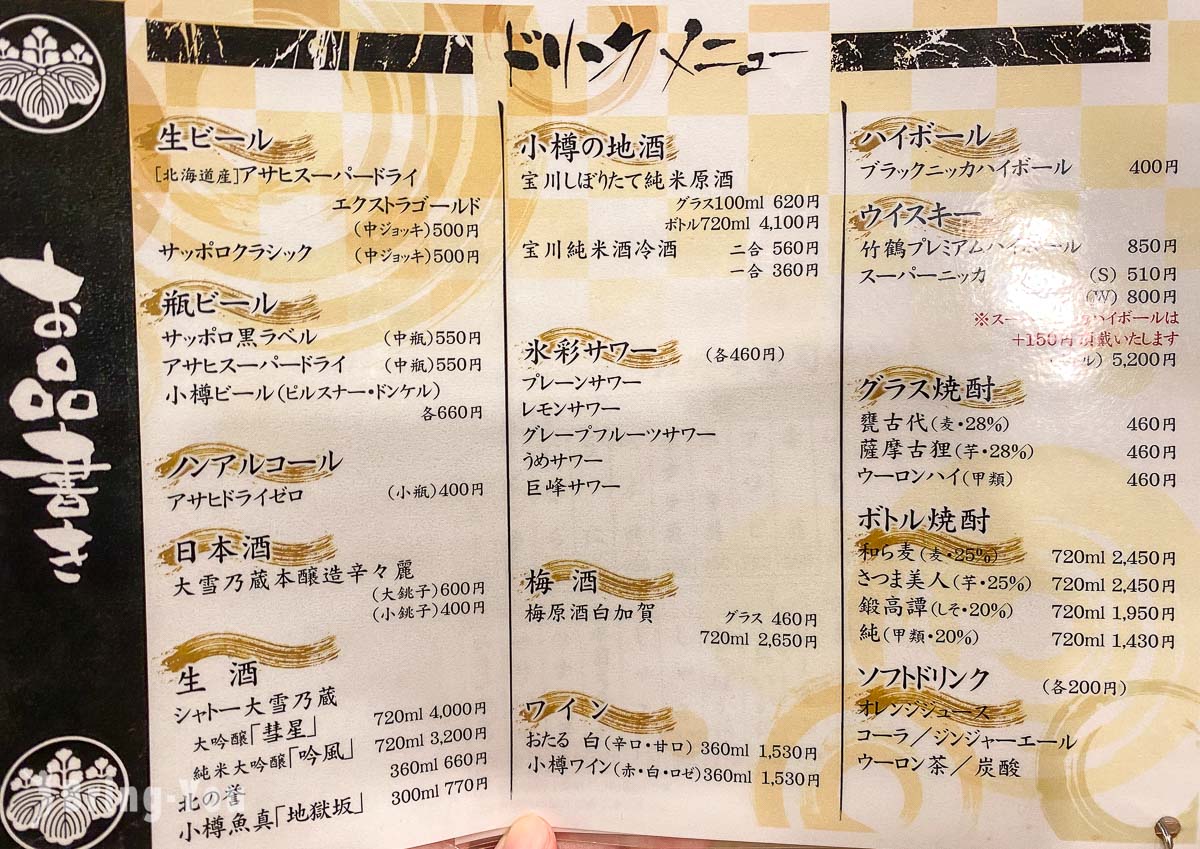 ドリンクメニュー
お品書き
生ビール
[北海道産]アサヒスーパードライ
エクストラゴールド
(中ジョッキ)500円
サッポロクラシック (中ジョッキ)500円
瓶ビール
サッポロ黒ラベル (中瓶)550円
アサヒスーパードライ (中瓶)550円
小樽ビール(ピルスナー・ドンケル)
各660円
ノンアルコール
アサヒドライゼロ (小瓶)400円
日本酒
大雪乃蔵本醸造辛々麗
(大銚子)600円
(小銚子)400円
生酒
シャトー大雪乃蔵
大吟醸「彗星」 720ml 4,000円
純米大吟醸「吟風」 720ml 3,200円
北の誉 360ml 660円
小樽魚真「地獄坂」 300ml 770円
小樽の地酒
宝川しぼりたて純米原酒
グラス100ml 620円
ボトル720ml 4,100円
宝川純米酒冷酒 二合 560円
一合 360円
氷彩サワー (各460円)
プレーンサワー
レモンサワー
グレープフルーツサワー
うめサワー
巨峰サワー
梅酒
梅原酒白加賀 グラス 460円
720ml 2,650円
ワイン
おたる 白(辛口・甘口) 360ml 1,530円
小樽ワイン(赤・白・ロゼ)360ml 1,530円
ハイボール
ブラックニッカハイボール 400円
ウイスキー
竹鶴プレミアムハイボール 850円
スーパーニッカ (S) 510円
(W) 800円
※スー ハイボールは
+150円頂戴いたします
5,200円
グラス焼酎
甕古代(麦・28%) 460円
薩摩古狸(芋・28%) 460円
ウーロンハイ(甲類) 460円
ボトル焼酎
和ら麦(麦・25%) 720ml 2,450円
さつま美人(芋・25%) 720ml 2,450円
鍛高譚(しそ・20%) 720ml 1,950円
純(甲類・20%) 720ml 1,430円
ソフトドリンク (各200円)
オレンジジュース
コーラ/ジンジャーエール
ウーロン茶/炭酸